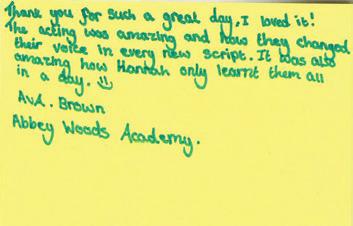 Thank you for such a great day, I loved it!
The acting was amazing and how they changed
their voice in every new script. It was also
amazing how Hannah only learnt them all
in a day.
Ava. Brown
Abbey Woods Academy.